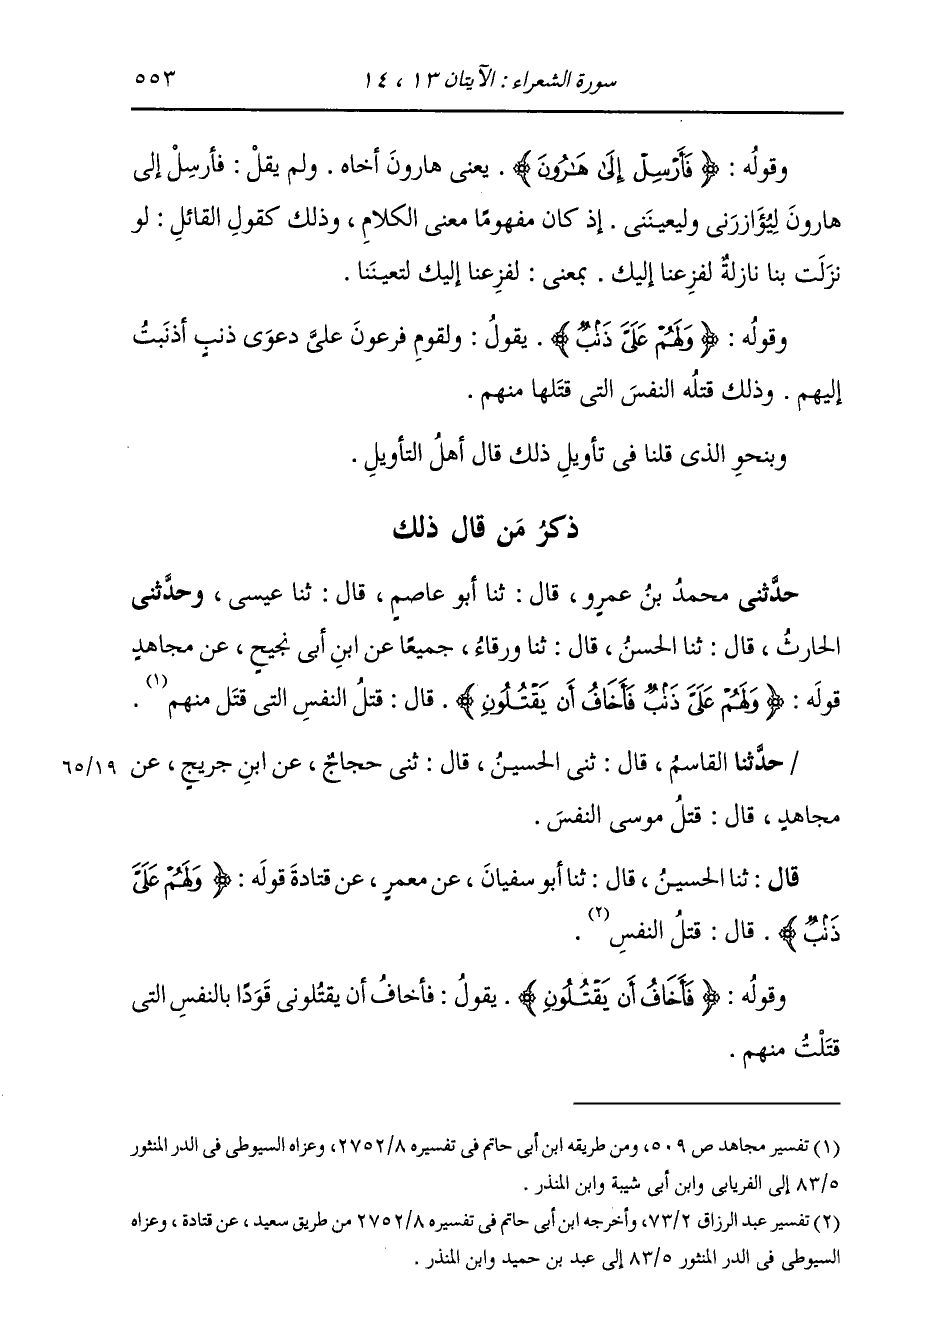 سورة الشعراء : الآيتان ١٣ ، ١٤ ٥٥٣
وقولُه : ﴿ فَأَرْسِلْ إِلَىٰ هَـٰرُونَ ﴾ . يعنى هارونَ أخاه . ولم يقلْ : فأرسِلْ إلى
هارونَ لِيُؤَازرَنى وليعينَنى . إذ كان مفهومًا معنى الكلامِ ، وذلك كقولِ القائلِ : لو
نزَلَت بنا نازلةٌ لفزِعنا إليك . بمعنى : لفزِعنا إليك لتعينَنا .
وقولُه : ﴿ وَلَهُمْ عَلَىَّ ذَنۢبٌ ﴾ . يقولُ : ولقومِ فرعونَ علىَّ دعوَى ذنبٍ أذنَبتُ
إليهم . وذلك قتلُه النفسَ التى قتَلها منهم .
وبنحوِ الذى قلنا فى تأويلِ ذلك قال أهلُ التأويلِ .
ذكرُ مَن قال ذلك
حدَّثنى محمدُ بنُ عمرٍو ، قال : ثنا أبو عاصمٍ ، قال : ثنا عيسى ، وحدَّثنى
الحارثُ ، قال : ثنا الحسنُ ، قال : ثنا ورقاءُ ، جميعًا عن ابنِ أبى نجيحٍ ، عن مجاهدٍ
قولَه : ﴿ وَلَهُمْ عَلَىَّ ذَنۢبٌ فَأَخَافُ أَن يَقْتُلُونِ ﴾ . قال : قتلُ النفسِ التى قتَل منهم(١) .
/ حدَّثنا القاسمُ ، قال : ثنى الحسينُ ، قال : ثنى حجاجٌ ، عن ابنِ جريجٍ ، عن ٦٥/١٩
مجاهدٍ ، قال : قتلُ موسى النفسَ .
قال : ثنا الحسينُ ، قال : ثنا أبو سفيانَ ، عن معمرٍ ، عن قتادةَ قولَه : ﴿ وَلَهُمْ عَلَىَّ
ذَنۢبٌ ﴾ . قال : قتلُ النفسِ(٢) .
وقولُه : ﴿ فَأَخَافُ أَن يَقْتُلُونِ ﴾ . يقولُ : فأخافُ أن يقتُلونى قَوَدًا بالنفسِ التى
قتَلْتُ منهم .
(١) تفسير مجاهد ص ٥٠٩، ومن طريقه ابن أبى حاتم فى تفسيره ٢٧٥٢/٨، وعزاه السيوطى فى الدر المنثور
٨٣/٥ إلى الفريابى وابن أبى شيبة وابن المنذر .
(٢) تفسير عبد الرزاق ٧٣/٢، وأخرجه ابن أبى حاتم فى تفسيره ٢٧٥٢/٨ من طريق سعيد ، عن قتادة ، وعزاه
السيوطى فى الدر المنثور ٨٣/٥ إلى عبد بن حميد وابن المنذر .